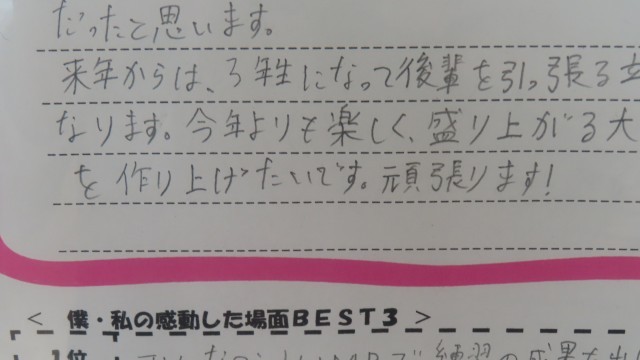 だったと思います。
来年からは、3年生になって後輩を引っ張る立
なります。今年よりも楽しく、盛り上がる大
を作り上げたいです。頑張ります!
< 僕・私の感動した場面BEST3 >
1位